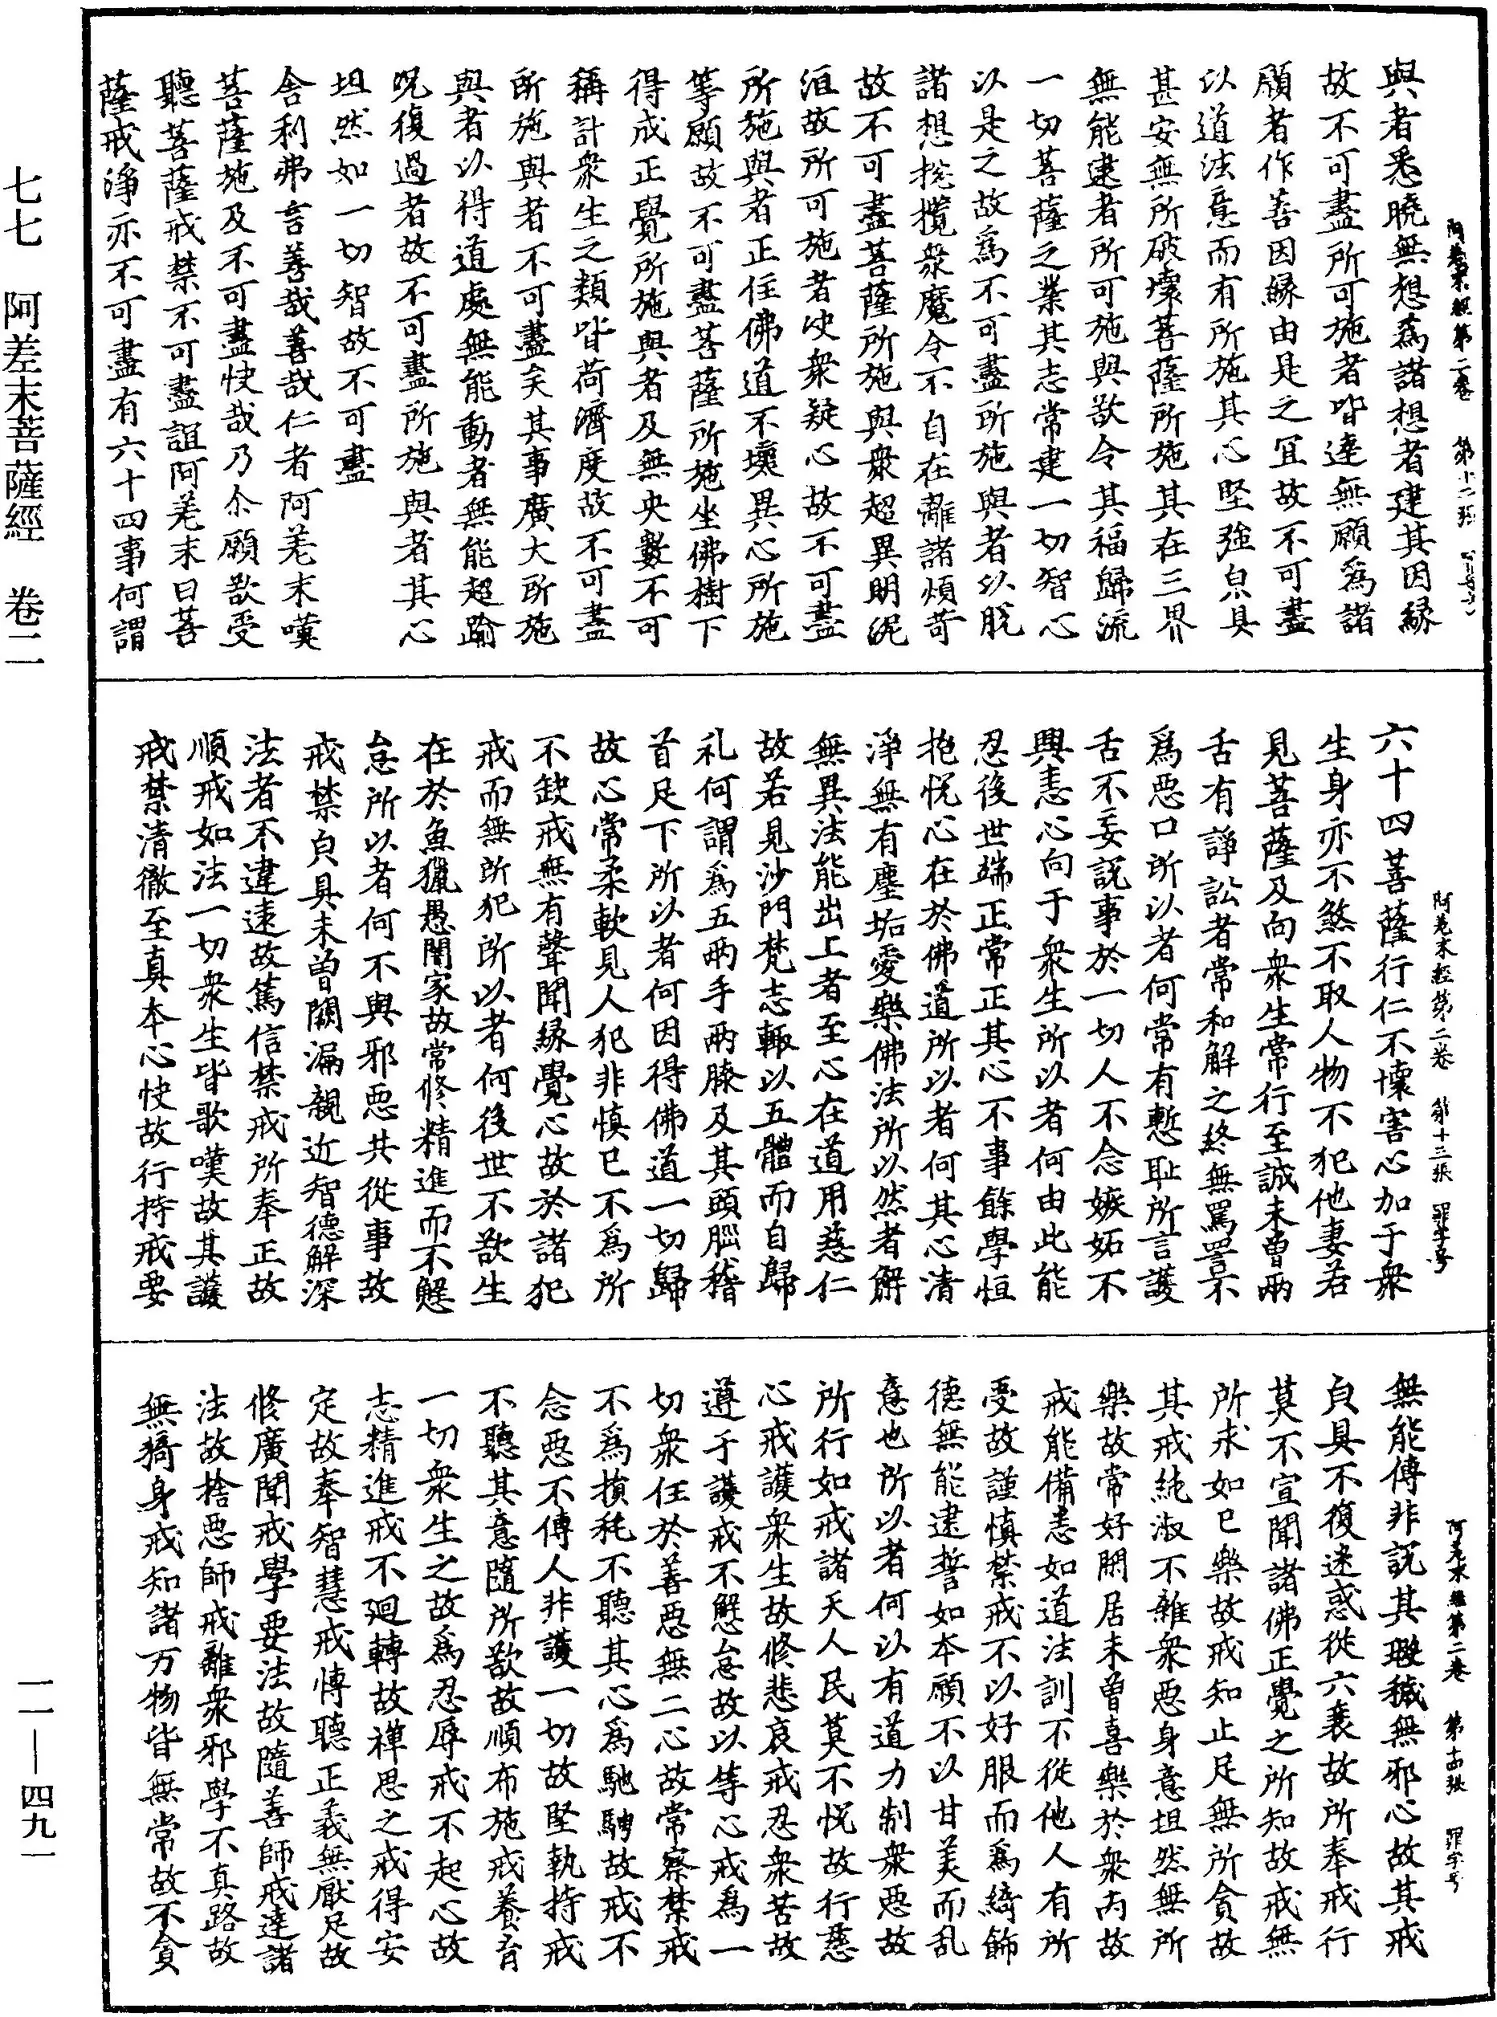 阿差末經第二卷 第十二張
與者悉曉無想爲諸想者建其因縁
故不可盡所可施者皆達無願爲諸
願者作善因縁由是之冝故不可盡
以道法意而有所施其心堅強㒵具
甚安無所破壞菩薩所施其在三界
無能逮者所可施與欲令其福歸流
一切菩薩之業其志常建一切智心
以是之故爲不可盡所施與者以脫
諸想挩攬衆魔令不自在離諸煩苛
故不可盡菩薩所施與衆超異明泥
洹故所可施者決衆疑心故不可盡
所施與者正住佛道不壞異心所施
等願故不可盡菩薩所施坐佛樹下
得成正覺所施與者及無央數不可
稱計衆生之類皆荷濟度故不可盡
所施與者不可盡矣其事廣大所施
與者以得道處無能動者無能超踰
呪復過者故不可盡所施與者其心
坦然如一切智故不可盡
舍利弗言善哉善哉仁者阿差末嘆
菩薩施及不可盡快哉乃尒願欲受
聽菩薩戒禁不可盡誼阿差末曰菩
薩戒淨亦不可盡有六十四事何謂
阿差末經第二卷 第十三張 罪字号
六十四菩薩行仁不懷害心加于衆
生身亦不煞不取人物不犯他妻若
見菩薩及向衆生常行至誠未曾兩
舌有諍訟者常和解之終無罵詈不
爲惡口所以者何常有慙耻所言護
舌不妄說事於一切人不念嫉妬不
興恚心向于衆生所以者何由此能
忍後世端正常正其心不事餘學恒
抱悅心在於佛道所以者何其心清
淨無有塵垢愛樂佛法所以然者解
無異法能出上者至心在道用慈仁
故若見沙門梵志輙以五體而自歸
礼何謂爲五兩手兩膝及其頭腦稽
首足下所以者何因得佛道一切歸
故心常柔軟見人犯非慎已不爲所
不缺戒無有聲聞縁覺心故於諸犯
戒而無所犯所以者何後世不欲生
在於魚獵愚闇家故常修精進而不懈
怠所以者何不與邪惡共從事故
戒禁㒵具未曾闕漏親近智德解深
法者不違遠故篤信禁戒所奉正故
順戒如法一切衆生皆歌嘆故其護
戒禁清徹至真本心快故行持戒要
阿差末經第二卷 第十四張 罪字号
無能傳非說其瑕穢無邪心故其戒
㒵具不復迷惑從六衰故所奉戒行
莫不宣聞諸佛正覺之所知故戒無
所求如已樂故戒知止足無所貪故
其戒純淑不雜衆惡身意坦然無所
樂故常好閑居未曾喜樂於衆丙故
戒能備悉如道法訓不從他人有所
受故謹慎禁戒不以好服而爲綺飾
德無能逮誓如本願不以甘美而乱
意也所以者何以有道力制衆惡故
所行如戒諸天人民莫不悅故行慈
心戒護衆生故修悲哀戒忍衆苦故
遵于護戒不懈怠故以等心戒爲一
切衆住於善惡無二心故常察禁戒
不爲損秏不聽其心爲馳騁故戒不
念惡不傳人非護一切故堅執持戒
不聽其意隨所欲故順布施戒養育
一切衆生之故爲忍辱戒不起心故
志精進戒不迴轉故禪思之戒得安
定故奉智慧戒慱聽正義無厭足故
修廣聞戒學要法故隨善師戒達諸
法故捨惡師戒離衆邪學不真路故
無猗身戒知諸万物皆無常故不貪
七七 阿差末菩薩經 卷二
一一—四九一